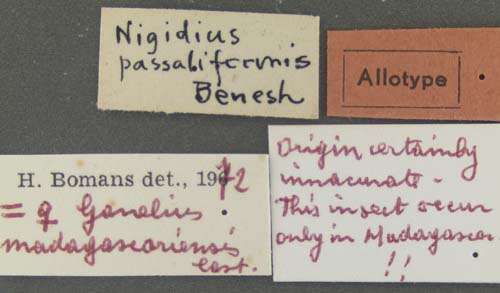 Nigidius
passaliformis
Benesh
Allotype
H. Bomans det., 1972
= ♀ Ganelius
madagascariensis
cast.
Origin certainly
innacurate -
This insect occur
only in Madagascar
!!